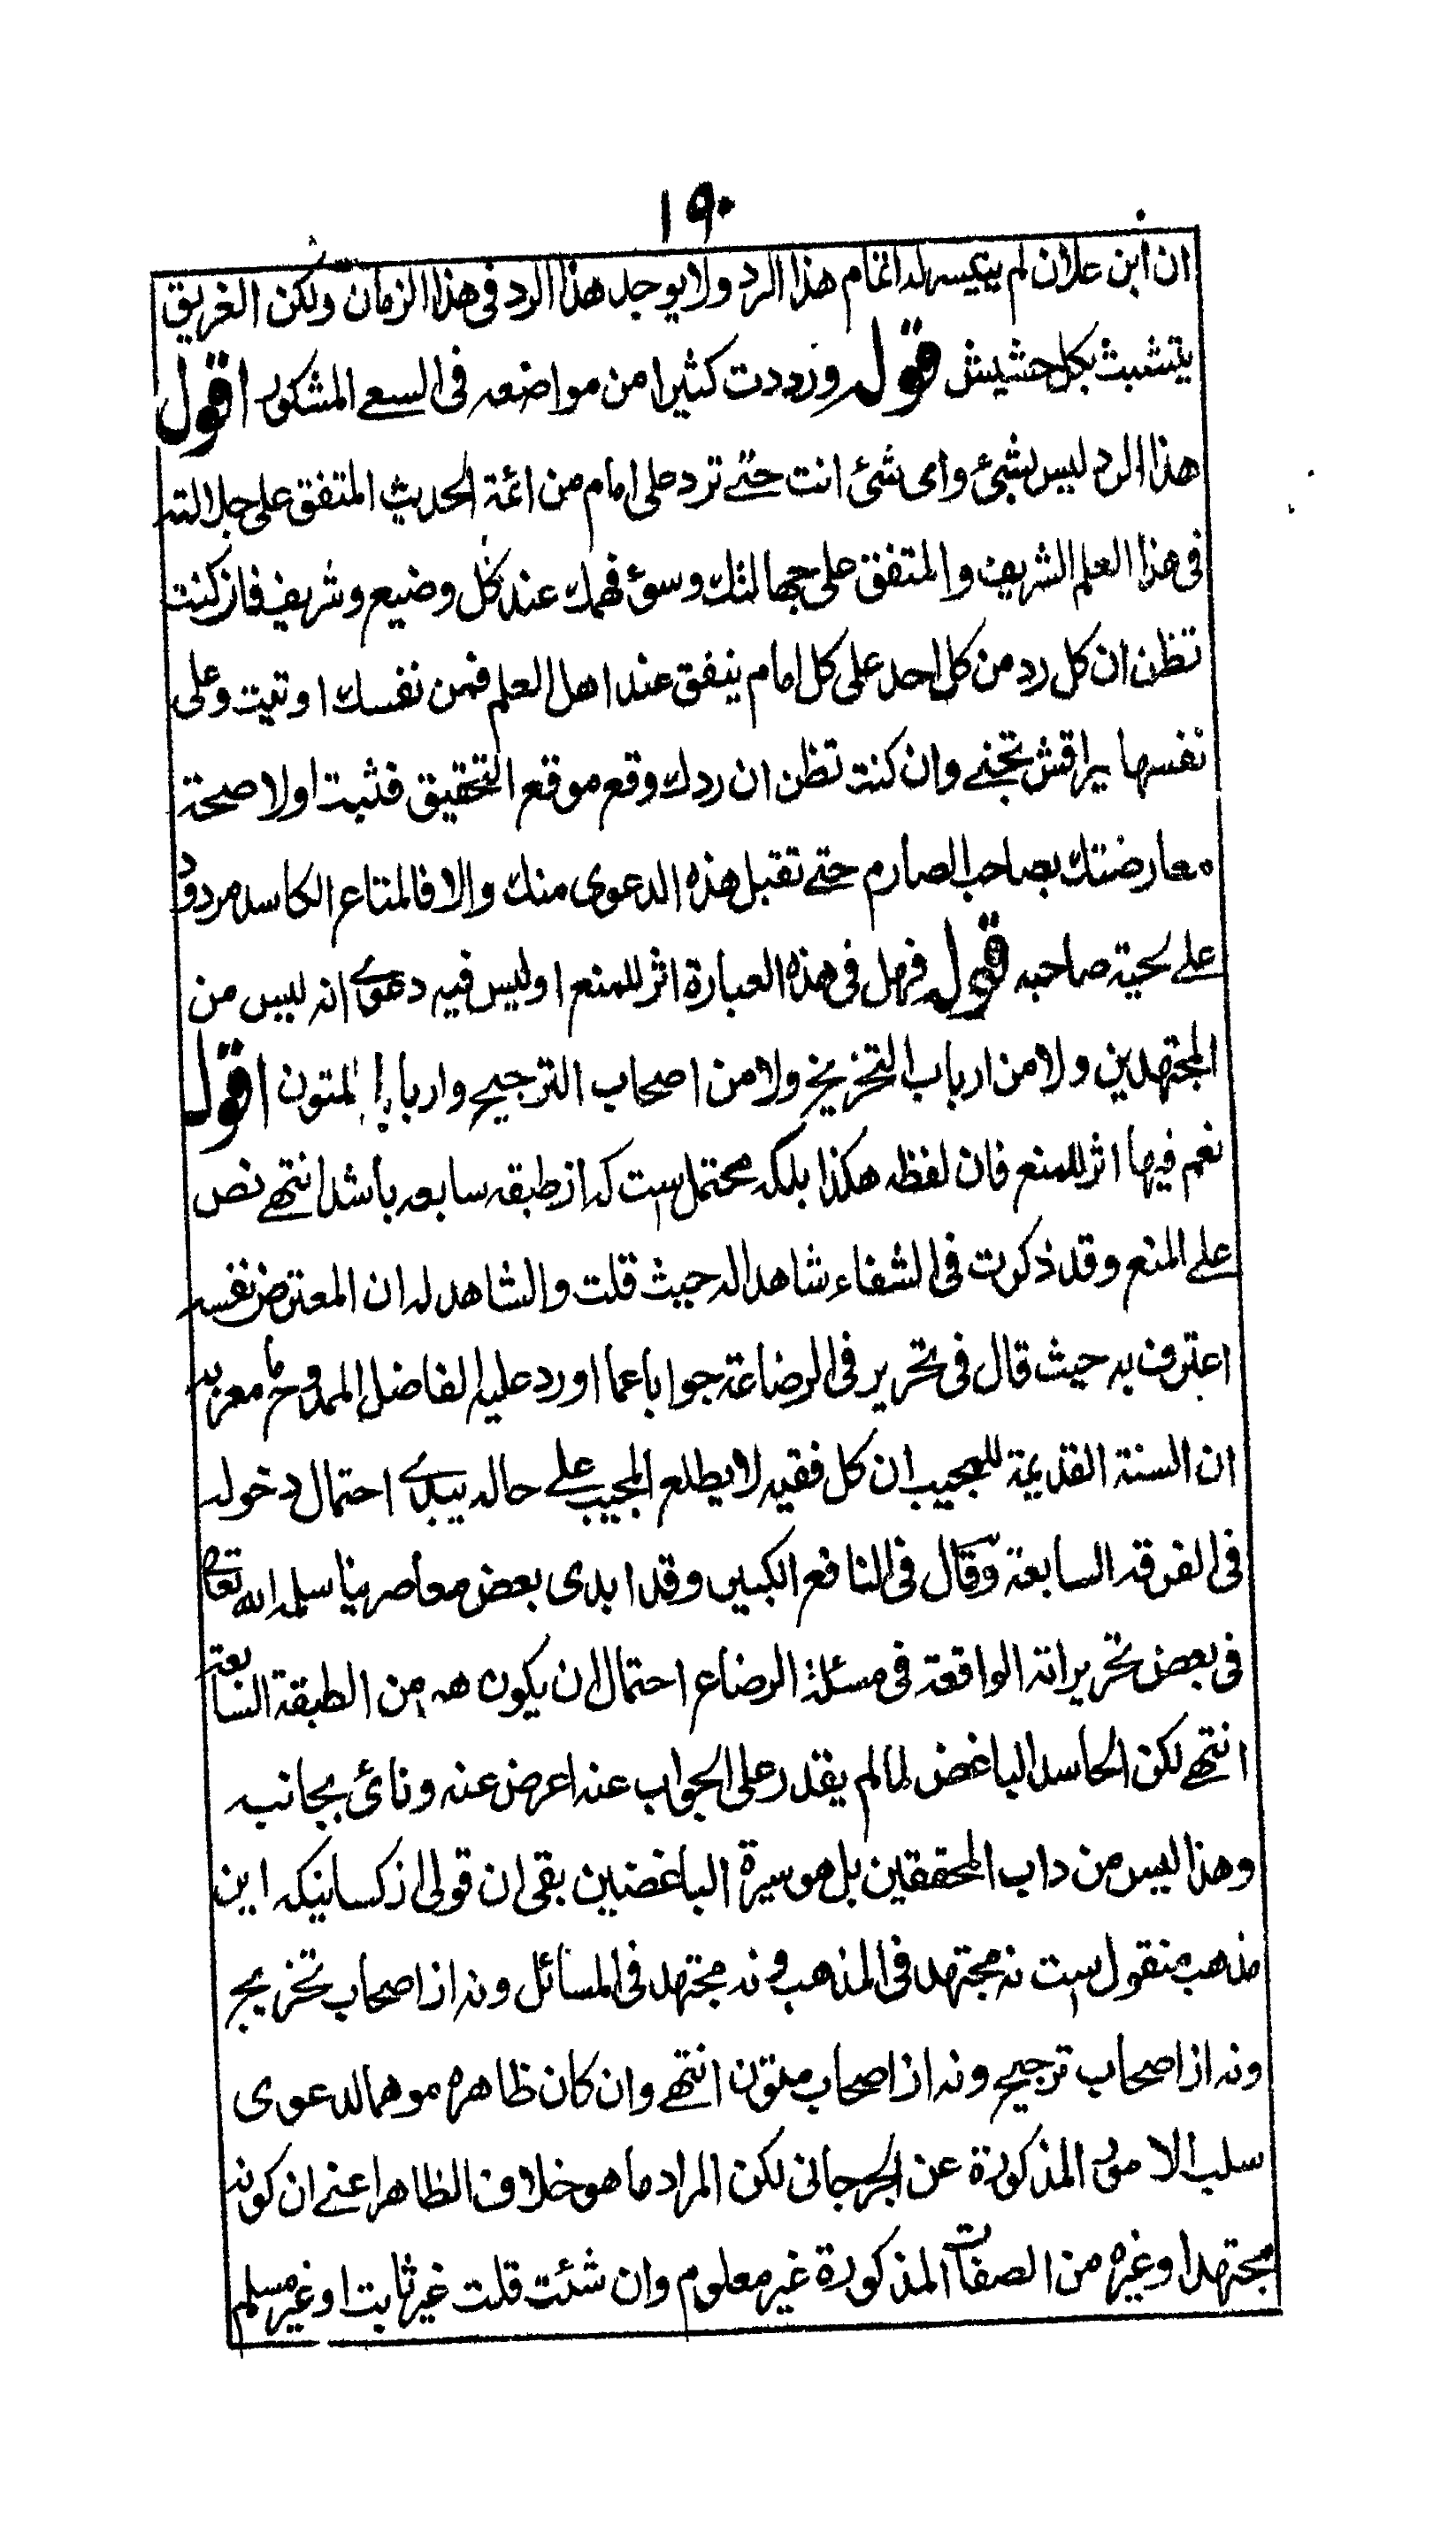 ١٩٠
ان ابن علان لم يتيسر له اتمام هذا الرد ولا يوجد هذا الرد في هذا الزمان ولكن الغريق
يتشبث بكل حشيش قوله ورددت كثيرا من مواضعه في السعي المشكور اقول
هذا الرد ليس بشيء واى شئ انت حتى ترد على امام من ائمة الحديث المتفق على جلالته
في هذا العلم الشريف والمتفق على جهالتك وسوء فهمك عند كل وضيع وشريف فان كنت
تظن ان كل رد من كل احد على كل امام ينفق عند اهل العلم فمن نفسك اوتيت وعلى
نفسها براقش تجني وان كنت تظن ان ردك وقع موقع التحقيق فثبت اولا صحة
معارضتك بصاحب الصارم حتى تقبل هذه الدعوى منك والا فالمتاع الكاسد مردود
على لحية صاحبه قوله فهل في هذه العبارة اثر للمنع او ليس فيه دعوى انه ليس من
المجتهدين ولا من ارباب التخريج ولا من اصحاب الترجيح وارباب المتون اقول
نعم فيها اثر للمنع فان لفظه هكذا بلكه محتمل است كه از طبقه سابعه باشد انتهى نص
على المنع وقد ذكرت في الشفاء شاهدا له حيث قلت والشاهد له ان المعترض نفسه
اعترف به حيث قال في تحرير في الرضاعة جوابا عما اورد عليه الفاضل الممدوح ما معربه
ان السنة القديمة للمجيب ان كل فقيه لا يطلع المجيب على حاله يبدى احتمال دخوله
في الفرقة السابعة وقال في النافع الكبير وقد ابدى بعض معاصرينا سلمه الله تعالى
في بعض تحريراته الواقعة في مسئلة الرضاع احتمال ان يكون هو من الطبقة السابعة
انتهى لكن الحاسد الباغض لما لم يقدر على الجواب عنه اعرض عنه ونائ بجانبه
وهذا ليس من داب المحققين بل هو سيرة الباغضين بقى ان قولى از كسانيكه اين
مذهب منقول است نه مجتهد في المذهب ونه مجتهد في المسائل ونه از اصحاب تخريج
ونه از اصحاب ترجيح ونه از اصحاب متون انتهى وان كان ظاهره موهما لدعوى
سلب الامور المذكورة عن الجرجاني لكن المراد ما هو خلاف الظاهر اعنى ان كونه
مجتهدا وغيره من الصفات المذكورة غير معلوم وان شئت قلت غير ثابت او غير مسلم